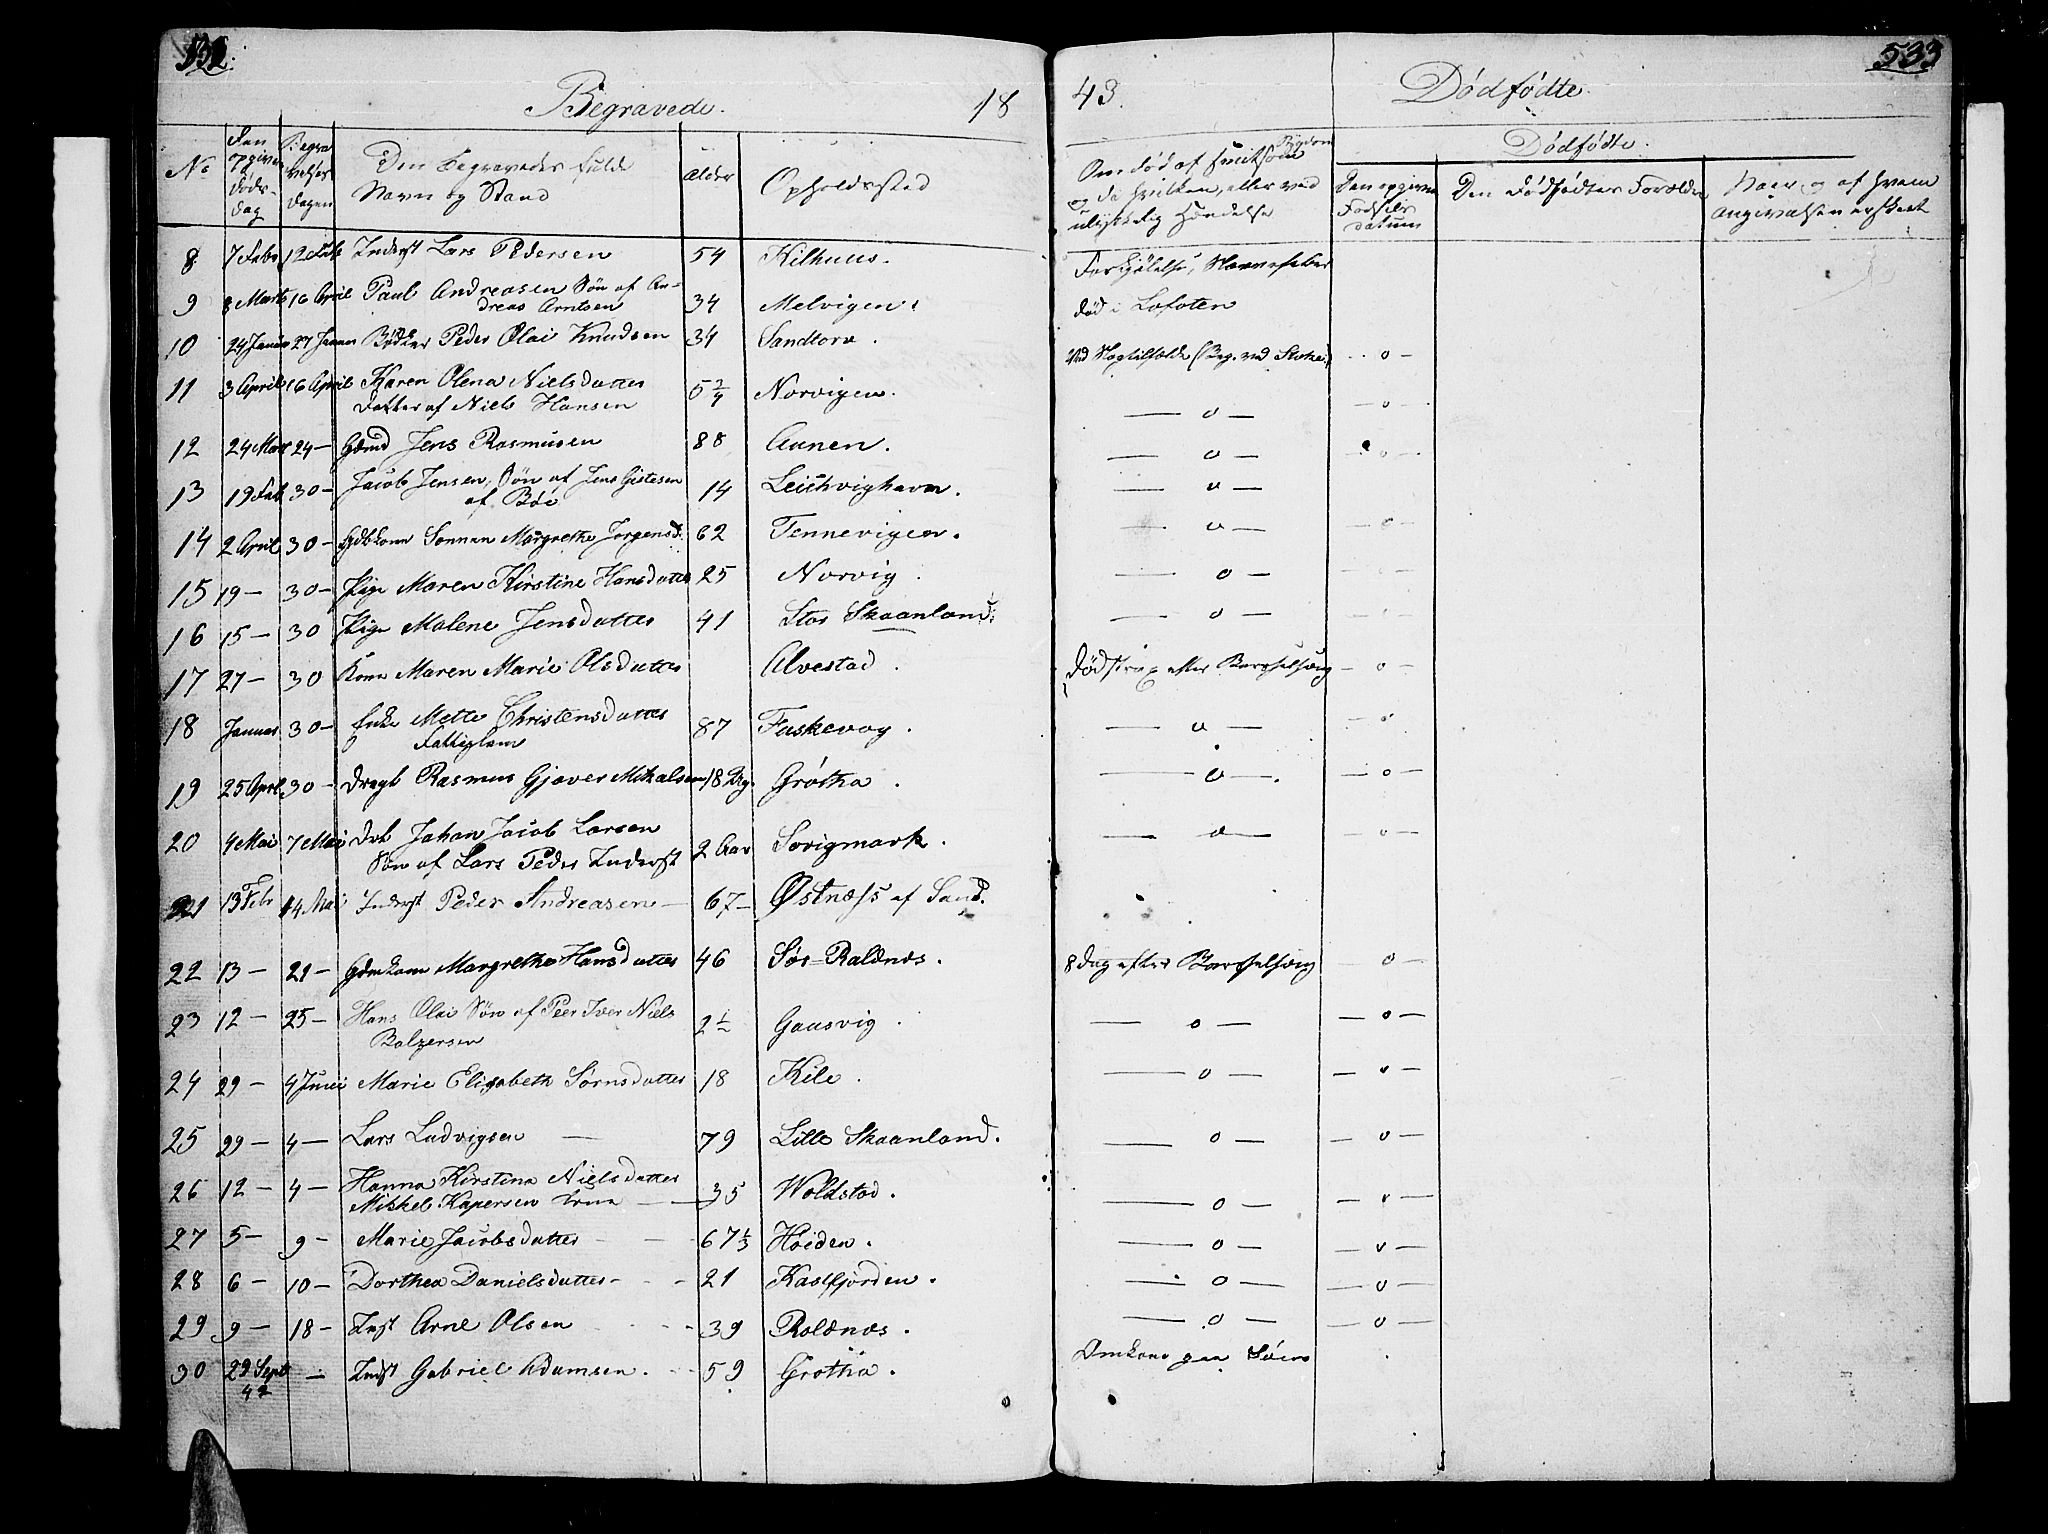 532.
533
Begravede. 18 43. Dødfødte.
No Den opgivne Døds-dag Begravelses Dagen Den Begravedes fulde Navn og Stand Alder Opholdssted
Om død af smitsom Sygdom og da hvilken, eller ved ulykkelig Hændelse
Dødfødte.
Den opgivne Fødsels datum Den Dødfødtes Forældre Naar og af hvem angivelsen er skeet
8 7 Febr 12 Feb Inderst Lars Pedersen 54 Kilhuus. Forkjølelse, Nervefeber
9 8 Marts 16 April Paul Andreasen Søn af An-
dreas Arntsen 34 Melvigen. død i Lofoten
10 24 Januar 27 Januar Bødker Peder Olai Knudsen 34 Sandtorv. - o -
11 3 April 16 April Karen Olena Nielsdatter
Datter af Niels Hansen 5 3/4 Norvigen. — o — - o -
12 24 Mar 24 — Gdmd Jens Rasmusen 88 Aunen. — o — - o -
13 19 Feb 30 — Jacob Jensen, Søn af Jens
af Böe 14 Leichvighavn. — o — - o -
14 2 April 30 — Margrethe Jörgensd. 62 Tennevigen. — o — - o -
15 19 — 30 — Pige Maren Kirstine Hansdatter 25 Norvig. — o — - o -
16 15 — 30 Pige Malene Jensdatter 41 Stor Skaanland. — o — - o -
17 27 — 30 Kone Maren Marie Olsdatter Alvestad. død strax efter Barselseng — o —
18 Januar 30 — Enke Mette Christensdatter
Fattiglem 87 Fuskevog. — o — - o -
19 25 April 30 — Drgb Rasmus Gjæver Mikalsen 18 Dg. Grötha. — o — — o —
20 4 Mai 7 Mai Drb Johan Jacob Larsen
Søn af Lars Peder Inderst 2 Aar Sorigmark. — o — - o -
21 13 Febr 14 Mai Inderst Peder Andreasen — 67 — Østnæss af Sand.
22 13 — 21 — Gdmkone Margrethe Hansdatter 46 Sör-Roldnæs. 8 dag efter Barselseng — o —
23 12 — 25 — Hans Olai Søn af Peer Iver Niels
Balzersen 2 1/2 Gausvig. — o — — o —
24 29 — 4 Juni Marie Elisabeth Sørnsdatter 18 Kile. — o — — o —
25 29 — 4 — Lars Ludvigsen — 79 Lille Skaanland. — o — — o —
26 12 — 4 — Hanna Kirstina Nielsdatter
Mikkel Kapersen Kone — 35 Woldstad. — o — — o —
27 5 — 9 — Marie Jacobsdatter — 67 1/3 Höiden. — o — — o —
28 6 — 10 — Dorthea Danielsdatter - - - 21 Kasfjorden. — o — — o —
29 9 — 18 — Inst Arne Olsen - - - 39 Roldnæs. — o — — o —
30 29 Sept
42 — Inst Gabriel Adamsen. - - 59 Grötha. Omkom paa Söen